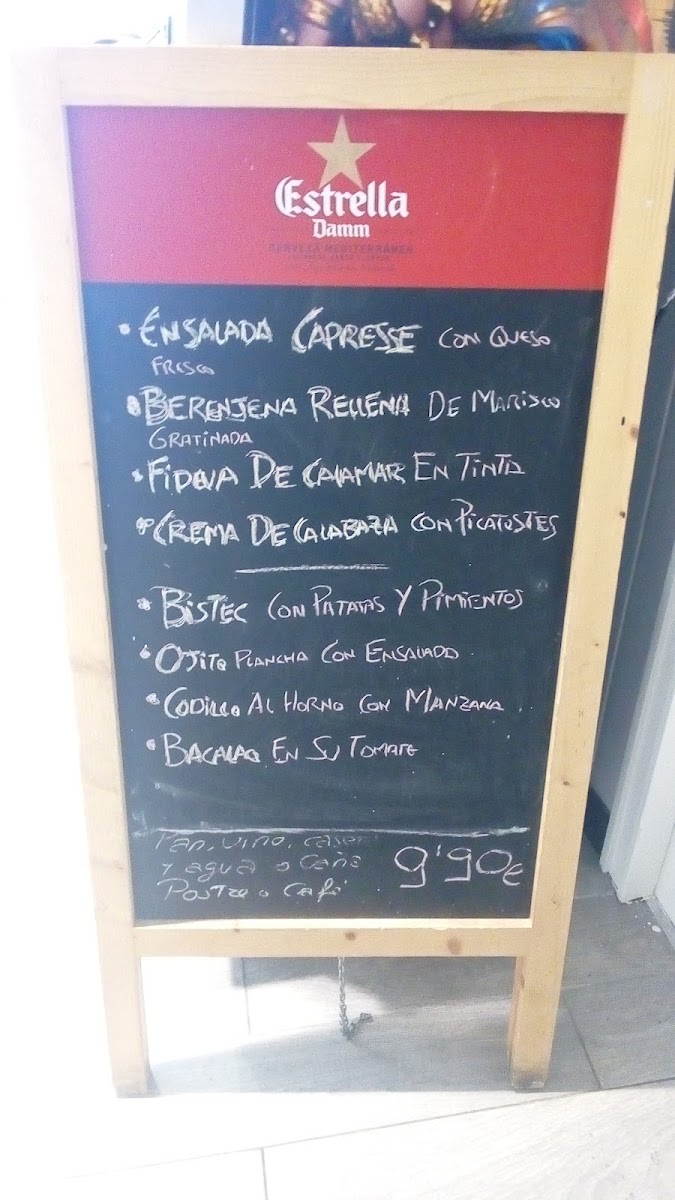 Estrella
Damm
CERVEZA MEDITERRÁNEA
• ENSALADA CAPRESSE CON QUESO
FRESCO
• BERENJENA RELLENA DE MARISCO
GRATINADA
• FIDEUA DE CALAMAR EN TINTA
• CREMA DE CALABAZA CON PICATOSTES
• BISTEC CON PATATAS Y PIMIENTOS
• OJITO PLANCHA CON ENSALADA
• CODILLO AL HORNO CON MANZANA
• BACALAO EN SU TOMATE
Pan, vino, caser
y agua o Caña
Postre o Café
9'90€